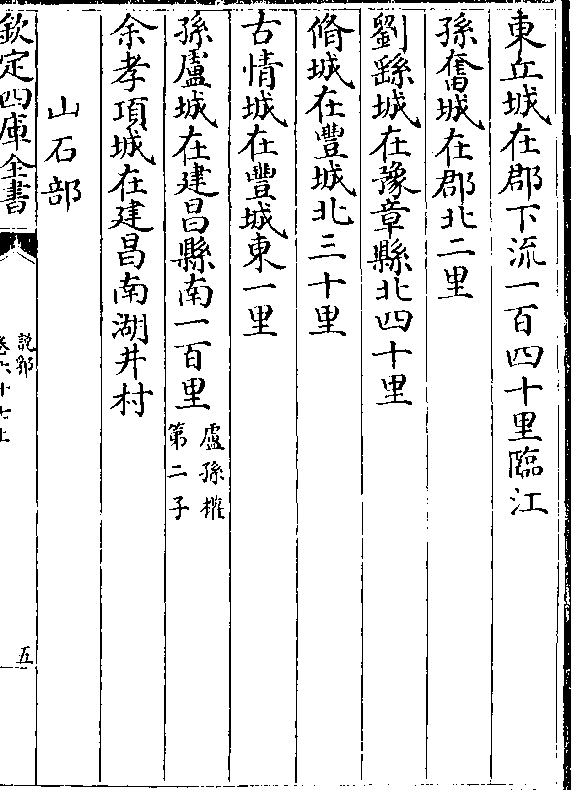 東丘城在郡下流一百四十里臨江
孫奮城在郡北二里
劉繇城在豫章縣北四十里
脩城在豐城北三十里
古情城在豐城東一里
孫廬城在建昌縣南一百里廬孫權第二子
余孝項城在建昌南湖井村
山石部
欽定四庫全書
說郛
卷六十七上
五